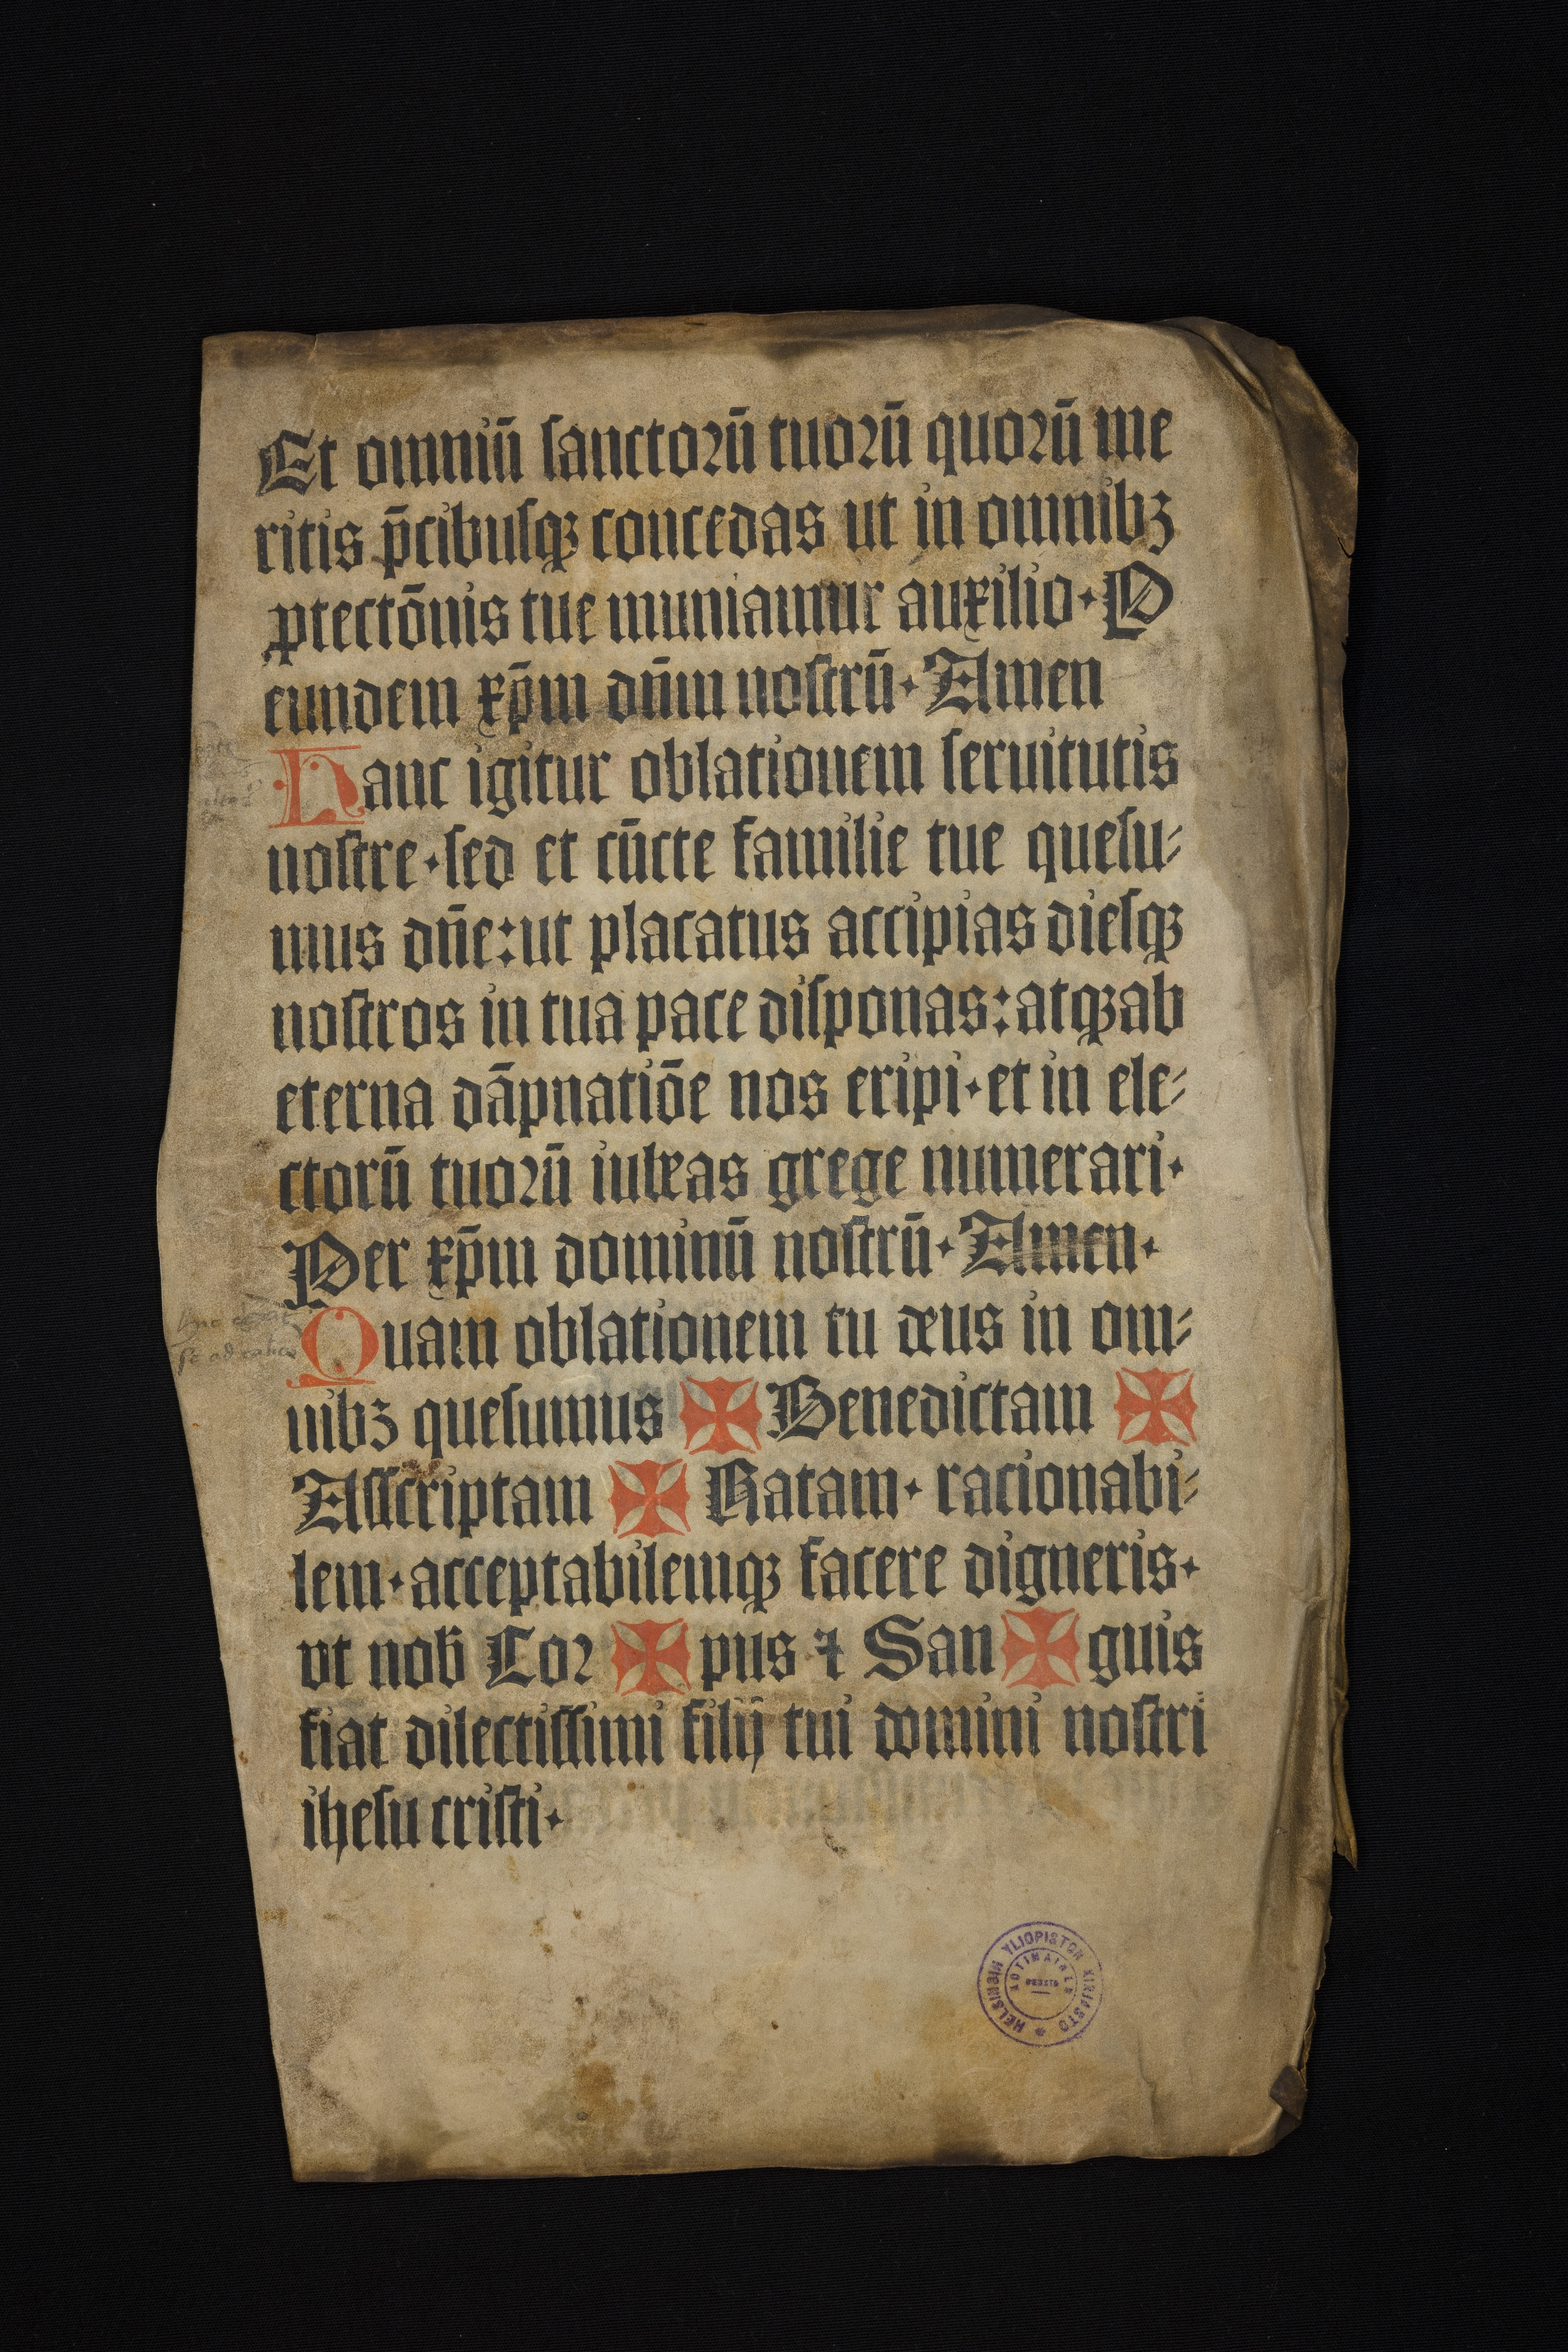 Et omniū ſanctoꝛū tuoꝛū quoꝛū me
ritis p̄cibuſqꝫ concedas ut in omnibꝫ
ꝓtectōnis tue muniamur auxilio· P
eundem xp̄m dn̄m noſtrū· Amen
Hanc igitur oblationem ſeruitutis
noſtre· ſed et cūcte familie tue queſu⸗
mus dn̄e: ut placatus accipias dieſqꝫ
noſtros in tua pace diſponas: atqꝫ ab
eterna dāpnatiōe nos eripi· et in ele⸗
ctorū tuoꝛū iubeas grege numerari·
Per xp̄m dominū noſtrū· Amen·
Quam oblationem tu deus in om⸗
nibꝫ queſumus ✠ Benedictam ✠
Aſſcriptam ✠ Ratam· racionabi⸗
lem· acceptabilemqꝫ facere digneris·
vt nob̄ Coꝛ ✠ pus ⁊ San ✠ guis
fiat dilectiſſimi filij tui domini noſtri
iheſu criſti·
HELSINGIN YLIOPISTON KIRJASTO